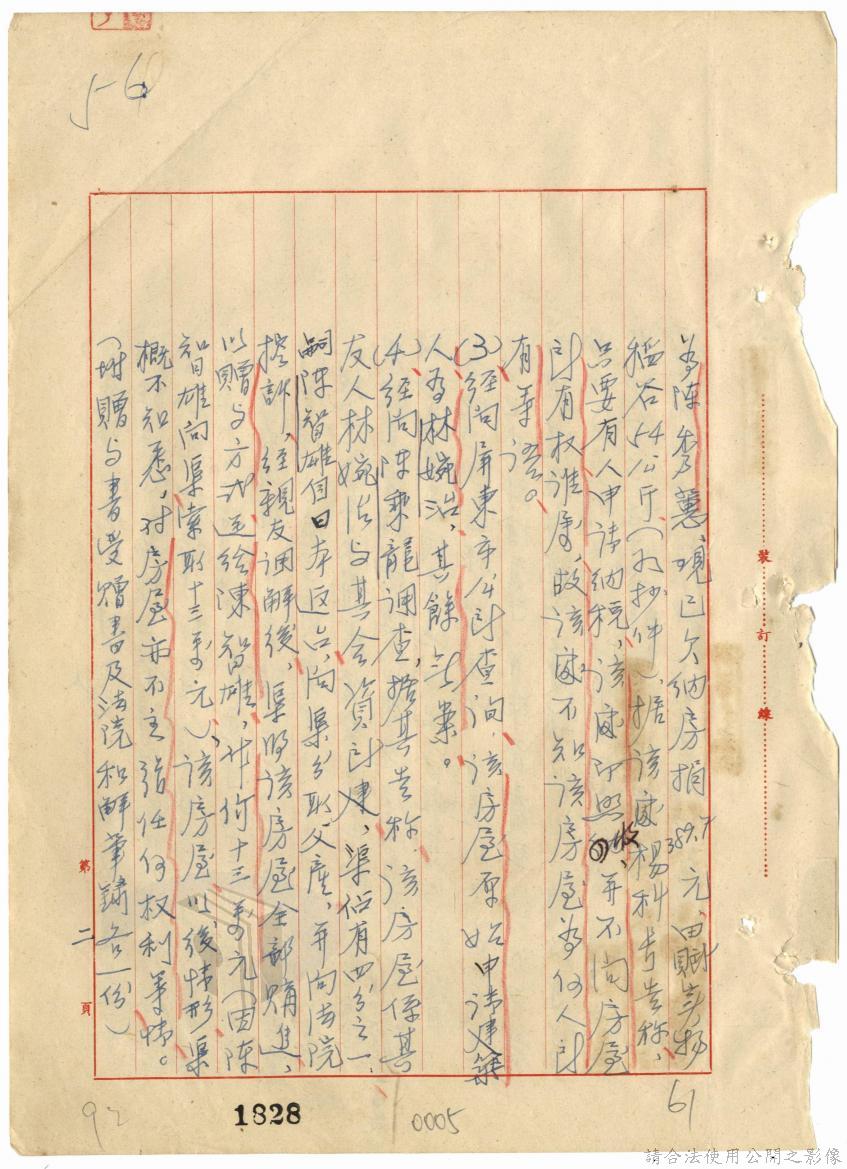 5-6
為陳秀蕙,現已欠納房捐389.7元,田賦實物
稽谷54公斤(如抄件),据該處楊科長告称,
只要有人申請納稅,該處即照收,并不問房屋
所有权誰屬,故該處不知該房屋為何人所
有等語。
(3)經向屏東市公所查詢,該房屋原始申請建築
人為林婉治,其餘無案。
(4)經向陳乘龍調查,据其告称,該房屋係其
友人林婉治与其合資所建,渠佔有四分之一,
嗣陳智雄自日本返台,向渠分取父產,并向法院
控訴,經親友調解後,渠將該房屋全部購進,
以贈与方式送給陳智雄,計價十三萬元(因陳
智雄向渠索取十三萬元),該房屋以後情形渠
概不知悉,对房屋亦不主張任何权利等情。
(附贈与書受贈書及法院和解筆錄各一份)
裝訂線
第二頁
61
92
1828
0005
請合法使用公開之影像